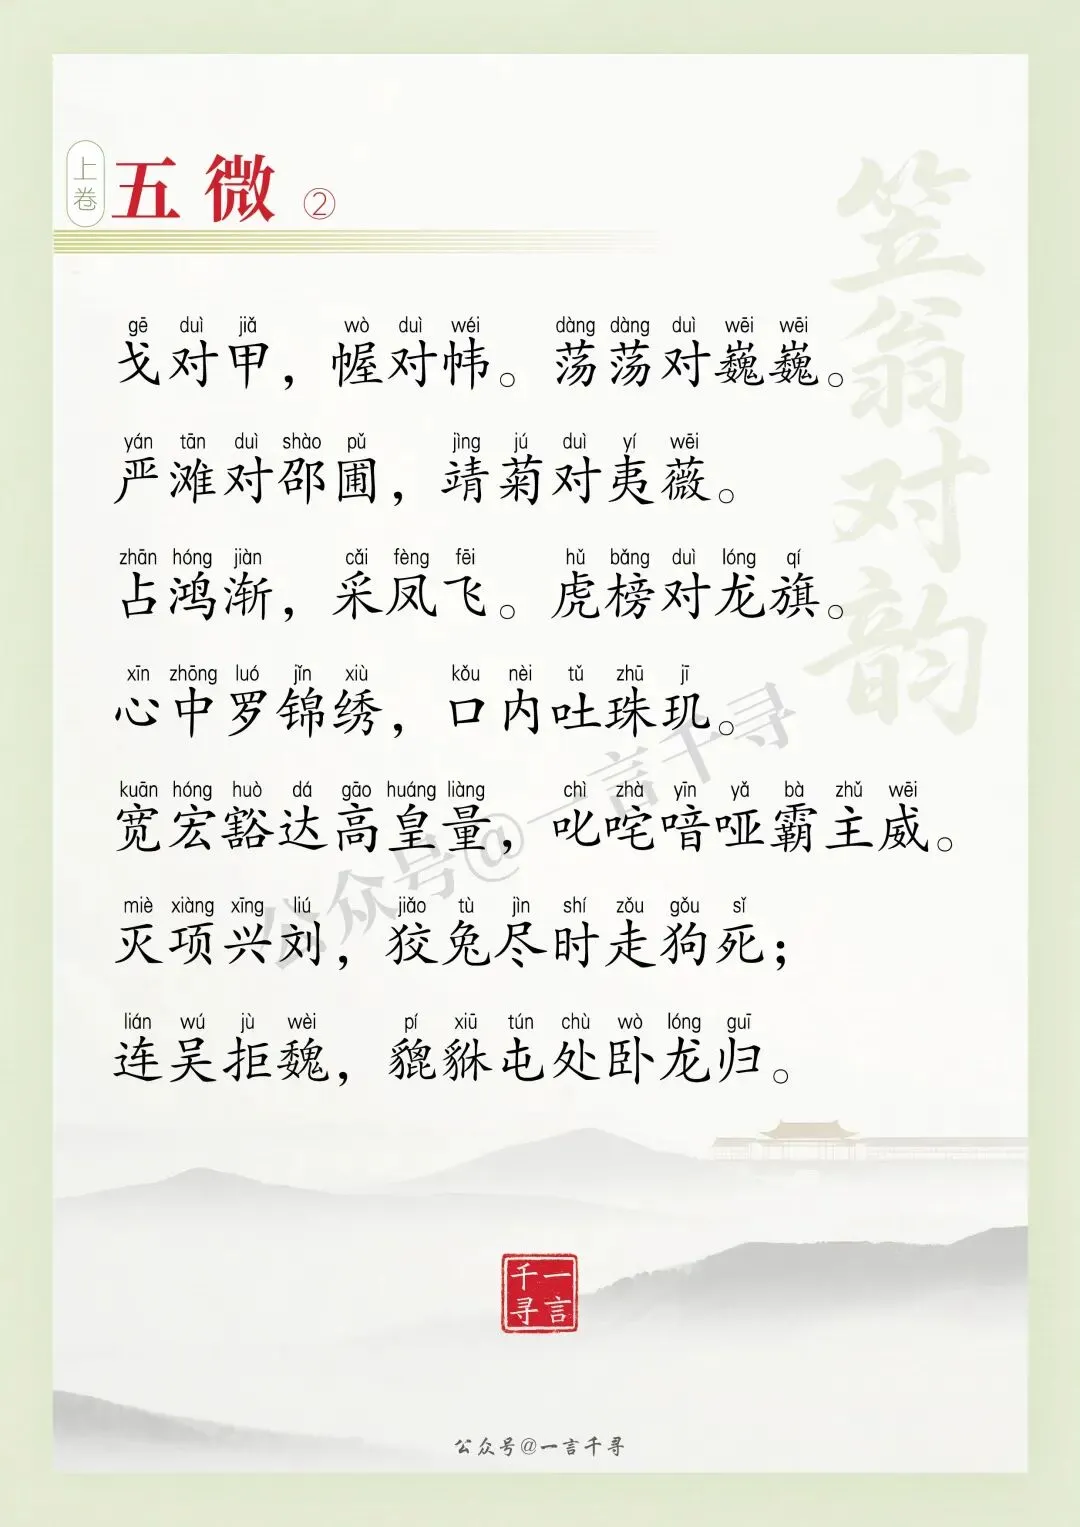 上卷
五微②
笠翁对韵
gē duì jiǎ wò duì wéi dàng dàng duì wēi wēi
戈对甲，幄对帏。荡荡对巍巍。
yán tān duì shào pǔ jìng jú duì yí wēi
严滩对邵圃，靖菊对夷薇。
zhān hóng jiàn cǎi fèng fēi hǔ bǎng duì lóng qí
占鸿渐，采凤飞。虎榜对龙旗。
xīn zhōng luó jǐn xiù kǒu nèi tǔ zhū jī
心中罗锦绣，口内吐珠玑。
kuān hóng huò dá gāo huáng liàng chì zhà yīn yǎ bà zhǔ wēi
宽宏豁达高皇量，叱咤喑哑霸主威。
miè xiàng xīng liú jiǎo tù jìn shí zǒu gǒu sǐ
灭项兴刘，狡兔尽时走狗死；
lián wú jù wèi pí xiū tún chù wò lóng guī
连吴拒魏，貔貅屯处卧龙归。
公众号@一言千寻
一言千寻
公众号@一言千寻